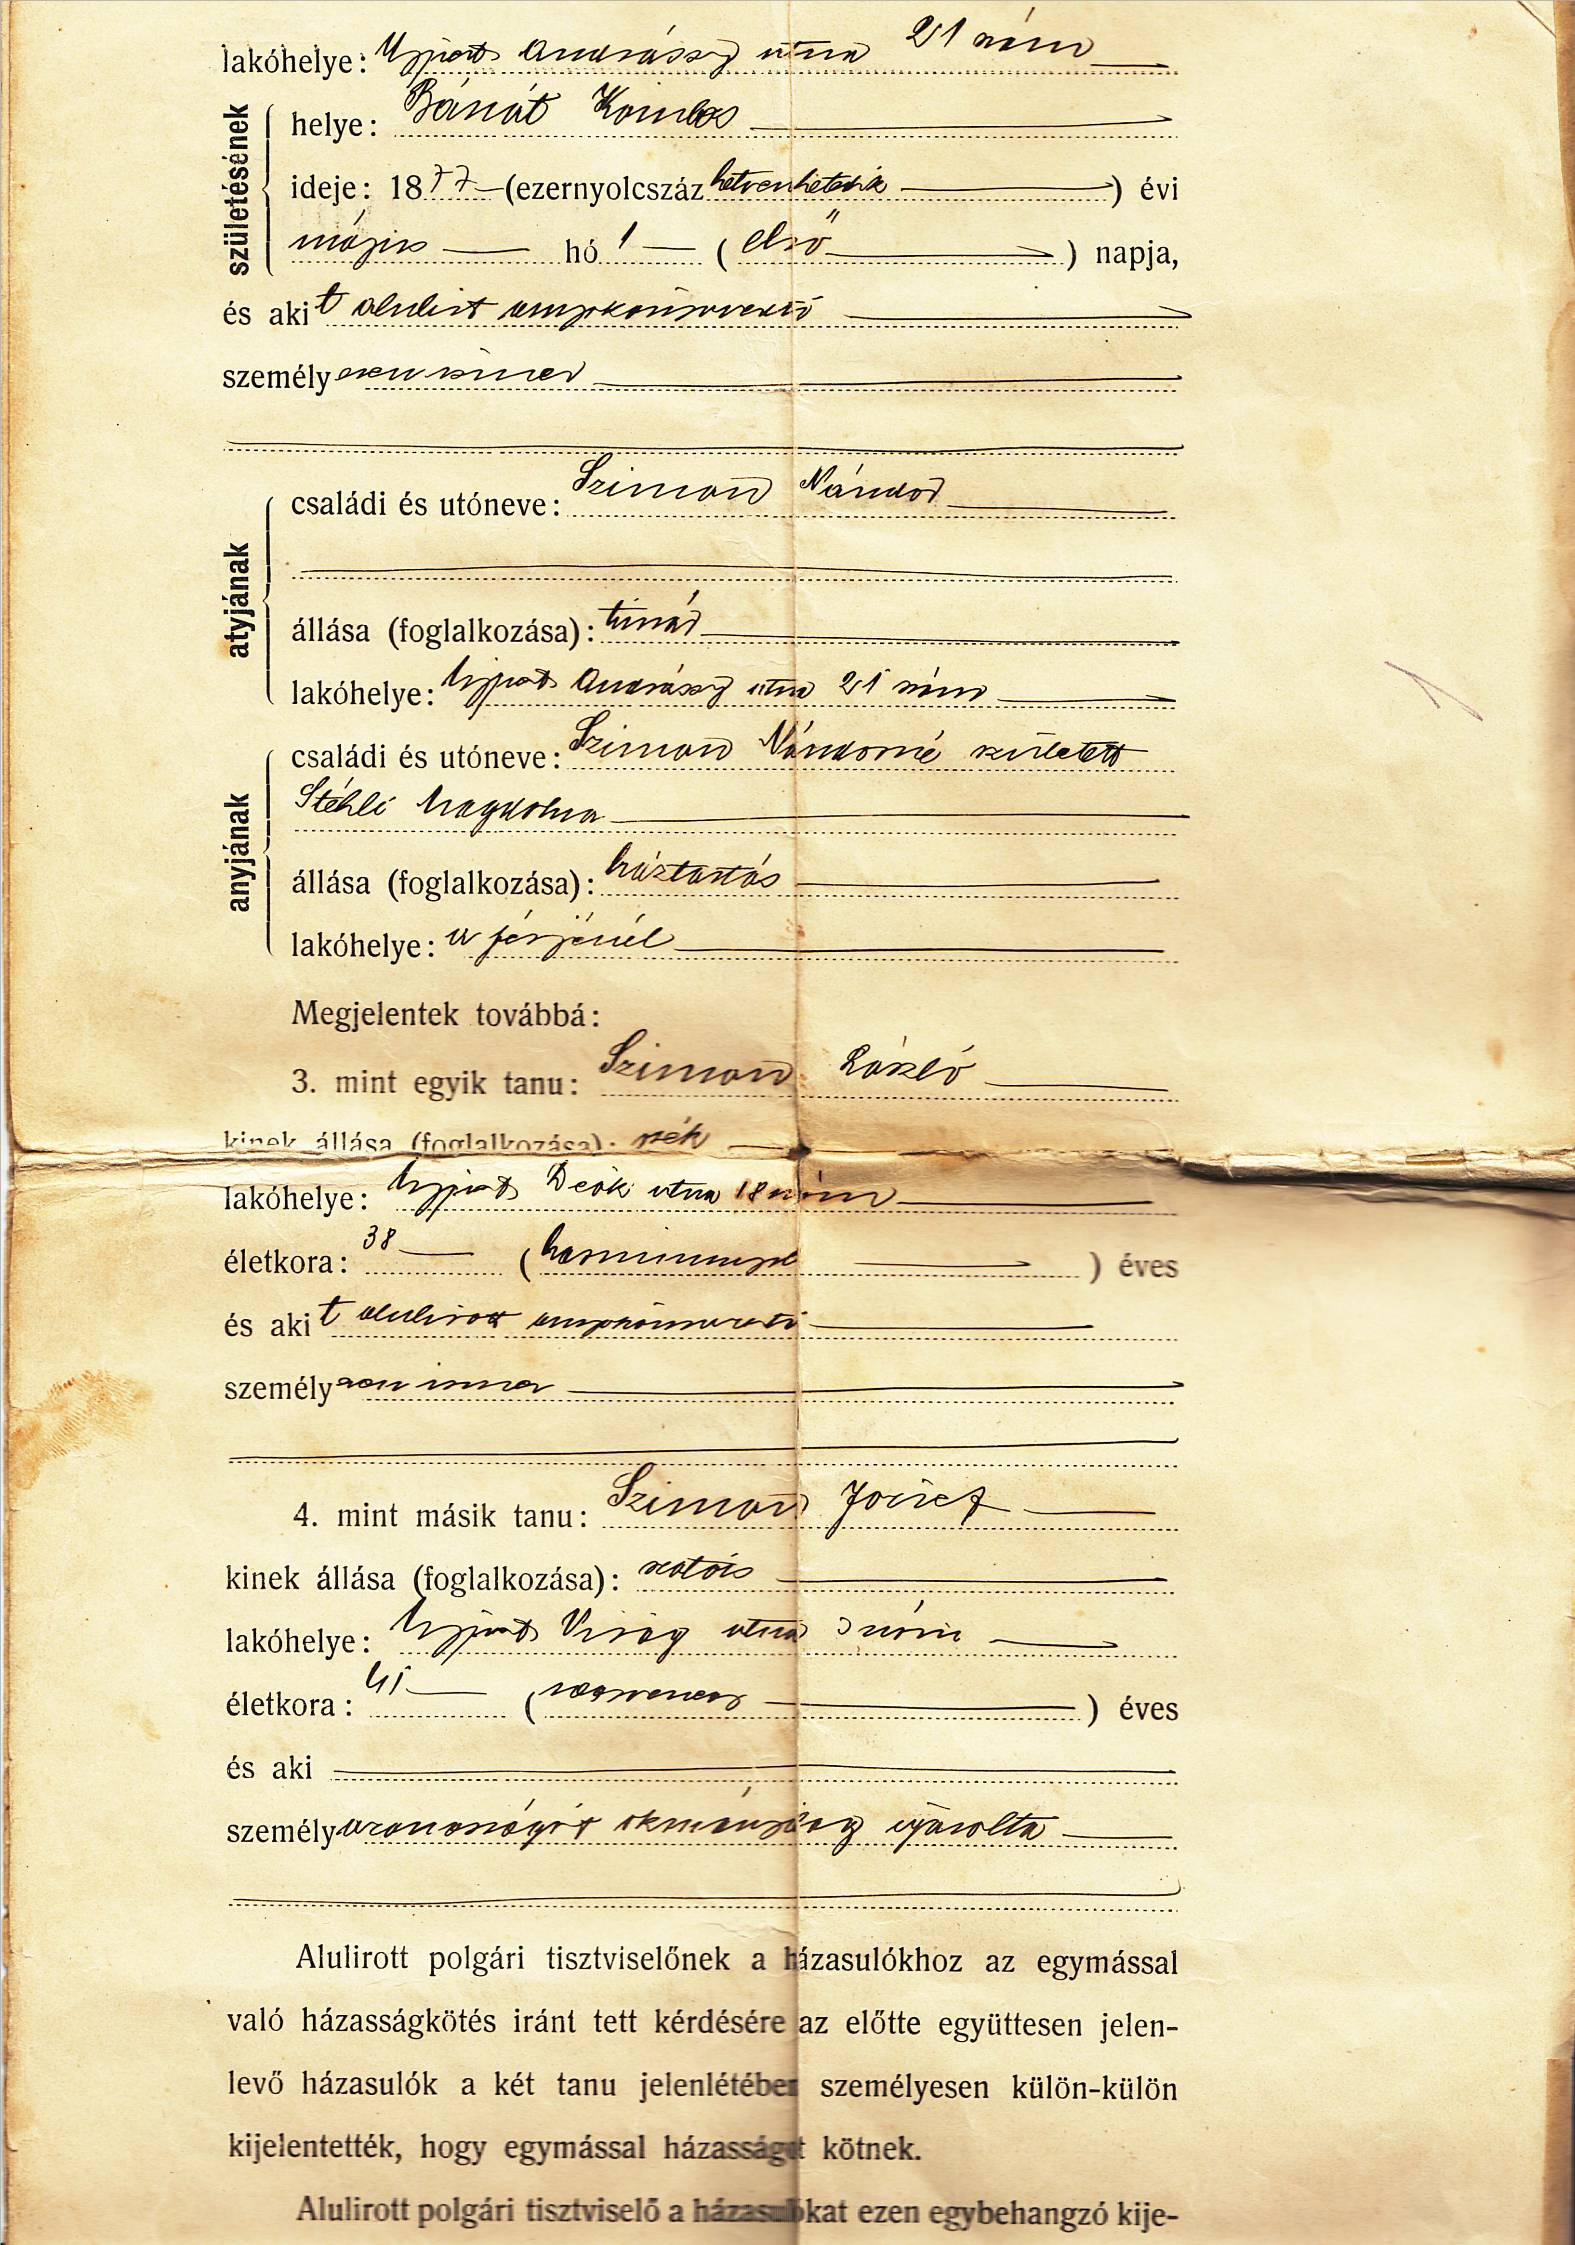 lakóhelye: Ujpest Andrássy utca 21 szám
születésének
helye: Bánát Komlos
ideje: 1877 (ezernyolcszáz hetvenhetedik) évi
május hó 1 (első) napja,
és akit alulirt anyakönyvvezető
személyesen ismer
atyjának
családi és utóneve: Szimon Nándor
állása (foglalkozása): timár
lakóhelye: Ujpest Andrássy utca 21 szám
anyjának
családi és utóneve: Szimon Nándorné született
Stéhli Magdolna
állása (foglalkozása): háztartás
lakóhelye: a férjénél
Megjelentek továbbá:
3. mint egyik tanu: Szimon László
kinek állása (foglalkozása):
lakóhelye: Ujpest Deák utca 18 szám
életkora: 38 (harmincnyolc) éves
és akit alulirott anyakönyvvezető
személyesen ismer
4. mint másik tanu: Szimon József
kinek állása (foglalkozása): szatócs
lakóhelye: Ujpest Virág utca szám
életkora: 41 (negyvenegy) éves
és aki
személyazonosságát okmányilag igazolta
Alulirott polgári tisztviselőnek a házasulókhoz az egymással
való házasságkötés iránt tett kérdésére az előtte együttesen jelen-
levő házasulók a két tanu jelenlétében személyesen külön-külön
kijelentették, hogy egymással házasságot kötnek.
Alulirott polgári tisztviselő a házasulókat ezen egybehangzó kije-